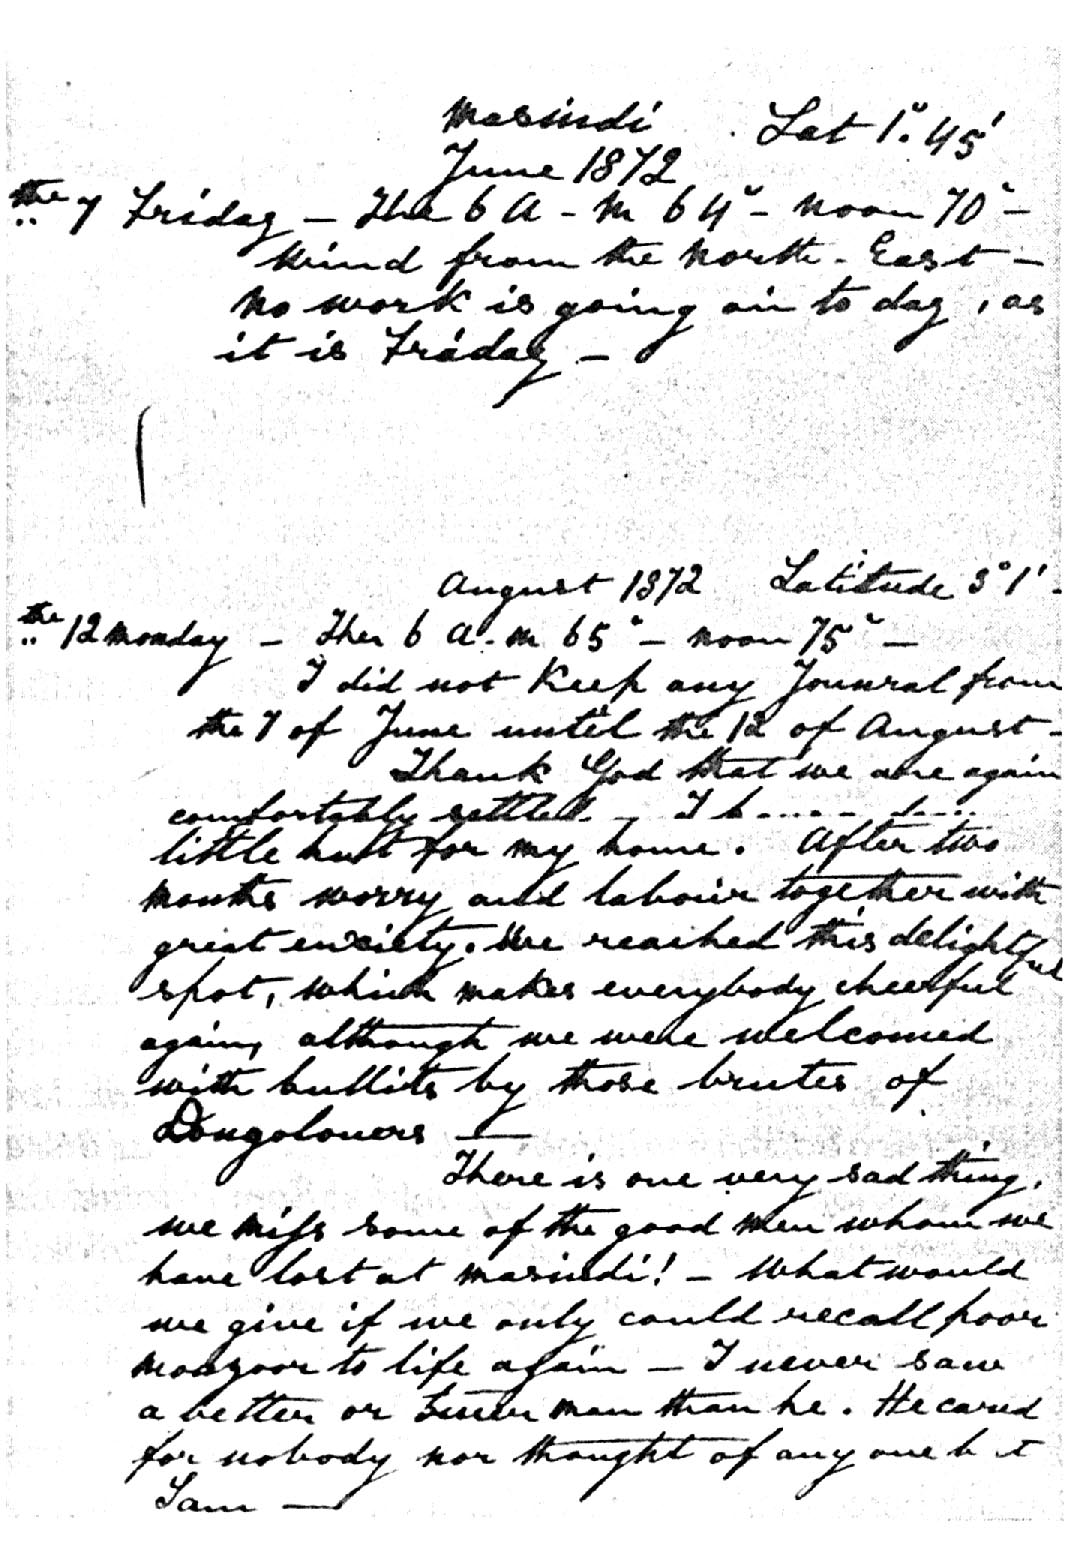 Masindi Lat 1° 45'
June 1872
the 7 Friday — Ther 6 A - M 64° - noon 70° -
Wind from the North - East -
No work is going on to day, as
it is Friday -
August 1872 Latitude 3° 1' -
the 12 monday - Ther 6 a.m 65° - noon 75° -
I did not Keep any Jounral from
the 7 of June until the 12 of August -
Thank God that we are again
comfortably settled -
little hut for my home. After two
months worry and labour together with
great enxiety. We reached this delightful
spot, which makes everybody cheerful
again, although we were welcomed
with bullits by those brutes of
Dongolowers —
There is one very sad thing,
we miss some of the good men whom we
have lost at masindi! - What would
we give if we only could recall poor
monsoor to life again - I never saw
a better or man than he. He cared
for nobody nor thought of any one b t
Sam —